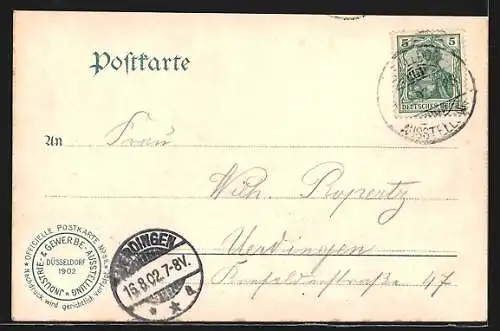 Postkarte
5 5
DEUTSCHES REICH
AUSSTELL
An Frau
Wilh. Ropertz
Uerdingen
47
OFFICIELLE POSTKARTE No
INDUSTRIE- & GEWERBE-AUSSTELLUNG
DÜSSELDORF
1902
Nachdruck wird gerichtlich verfolgt
RDINGEN
16.8.02.7-8V.
* * a